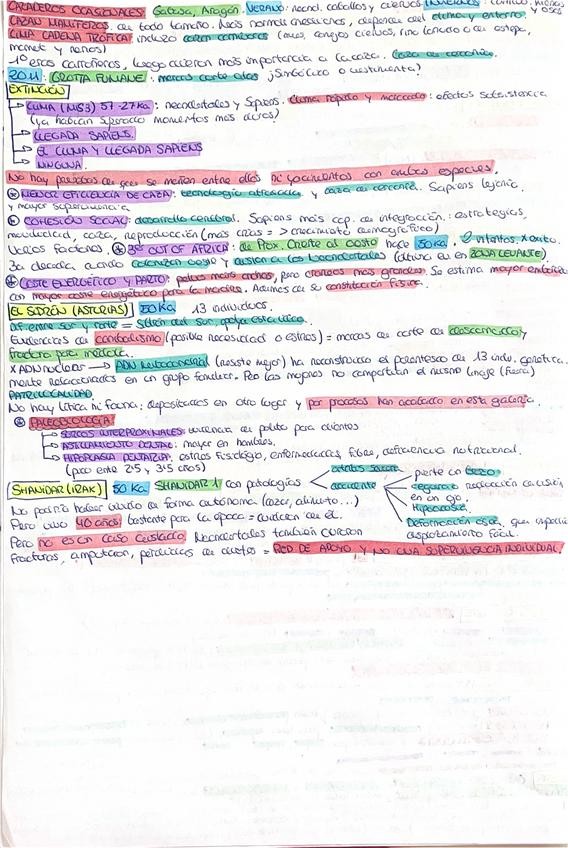 CAZADEROS OCASIONALES: Gabasa, Aragón. VERANO: caballos y ciervos. INVIERNO:
CAZAN MAMÍFEROS de todo tamaño. depende del clima y entorno.
CIMA CADENA TRÓFICA: incluso cazan carnívoros
1º eran carroñeros, luego dieron más importancia a la caza.
GROTTA FUMANE: marcas corte alas ¿Simbólico o vestimenta?
EXTINCIÓN
CLIMA (MIS3) 57-27Ka: neandertales y Sapiens. Clima rápido y marcado: efectos subsistencia
(ya habían superado momentos más duros)
LLEGADA SAPIENS.
El CLIMA Y LLEGADA SAPIENS
NINGUNA.
No hay pruebas de que se maten entre ellos ni yacimientos con ambas especies.
MENOR EFICIENCIA DE CAZA: tecnología atrasada y caza de cercanía. Sapiens lejanía
y mayor supervivencia
COHESIÓN SOCIAL: desarrollo cerebral. Sapiens más cap. de integración: estrategias,
movilidad, caza, reproducción (más crías = > crecimiento demográfico)
Varios factores. 3º OUT OF AFRICA: de Prox. Oriente al oeste hace 50Ka. 2 intentos, x éxito.
3a oleada cuando colonizan oeste y aíslan a los Neandertales (última en ZONA LEVANTE).
COSTE ENERGÉTICO Y PARTO: pelvis más anchas, pero cráneos más grandes. Se estima mayor
con mayor coste energético para la madre. Además de su constitución física.
EL SIDRÓN (ASTURIAS) 50Ka 13 individuos.
Dif. entre sur y norte = Sidrón del Sur, apoya esta idea.
Evidencias de canibalismo (posible necesidad o estrés) = marcas de corte de descarnado y
fractura para médula.
X ADN nuclear → ADN Mitocondrial (resiste mejor) ha reconstruido el parentesco de 13 indv. Genética
mente relacionados en un grupo familiar. Pero las mujeres no compartían el mismo linaje (fuera)
PATRILOCALIDAD
No hay lítica ni fauna: depositados en otro lugar y por procesos han acabado en esta galería.
PALEOBIOLOGÍA:
SURCOS INTERPROXIMALES: evidencia de palito para dientes
ASTILLAMIENTO DENTAL: mayor en hombres.
HIPOPLASIA DENTARIA: estrés fisiológico, enfermedades, fiebre, deficiencia nutricional.
(pico entre 2'5 y 3'5 años)
SHANIDAR (IRAK) 50 Ka SHANIDAR 1 con patologías
accidente
pierde un brazo.
en un ojo.
Hipoacusia.
Deformación ósea, que
desplazamiento facial.
No podría haber vivido de forma autónoma (cazar, alimento...)
Pero vivió 40 años: bastante para la época = cuidan de él.
Pero no es un caso aislado. Neandertales también curaron
fracturas, amputación, pérdidas de dientes = RED DE APOYO Y NO UNA SUPERVIVENCIA INDIVIDUAL.